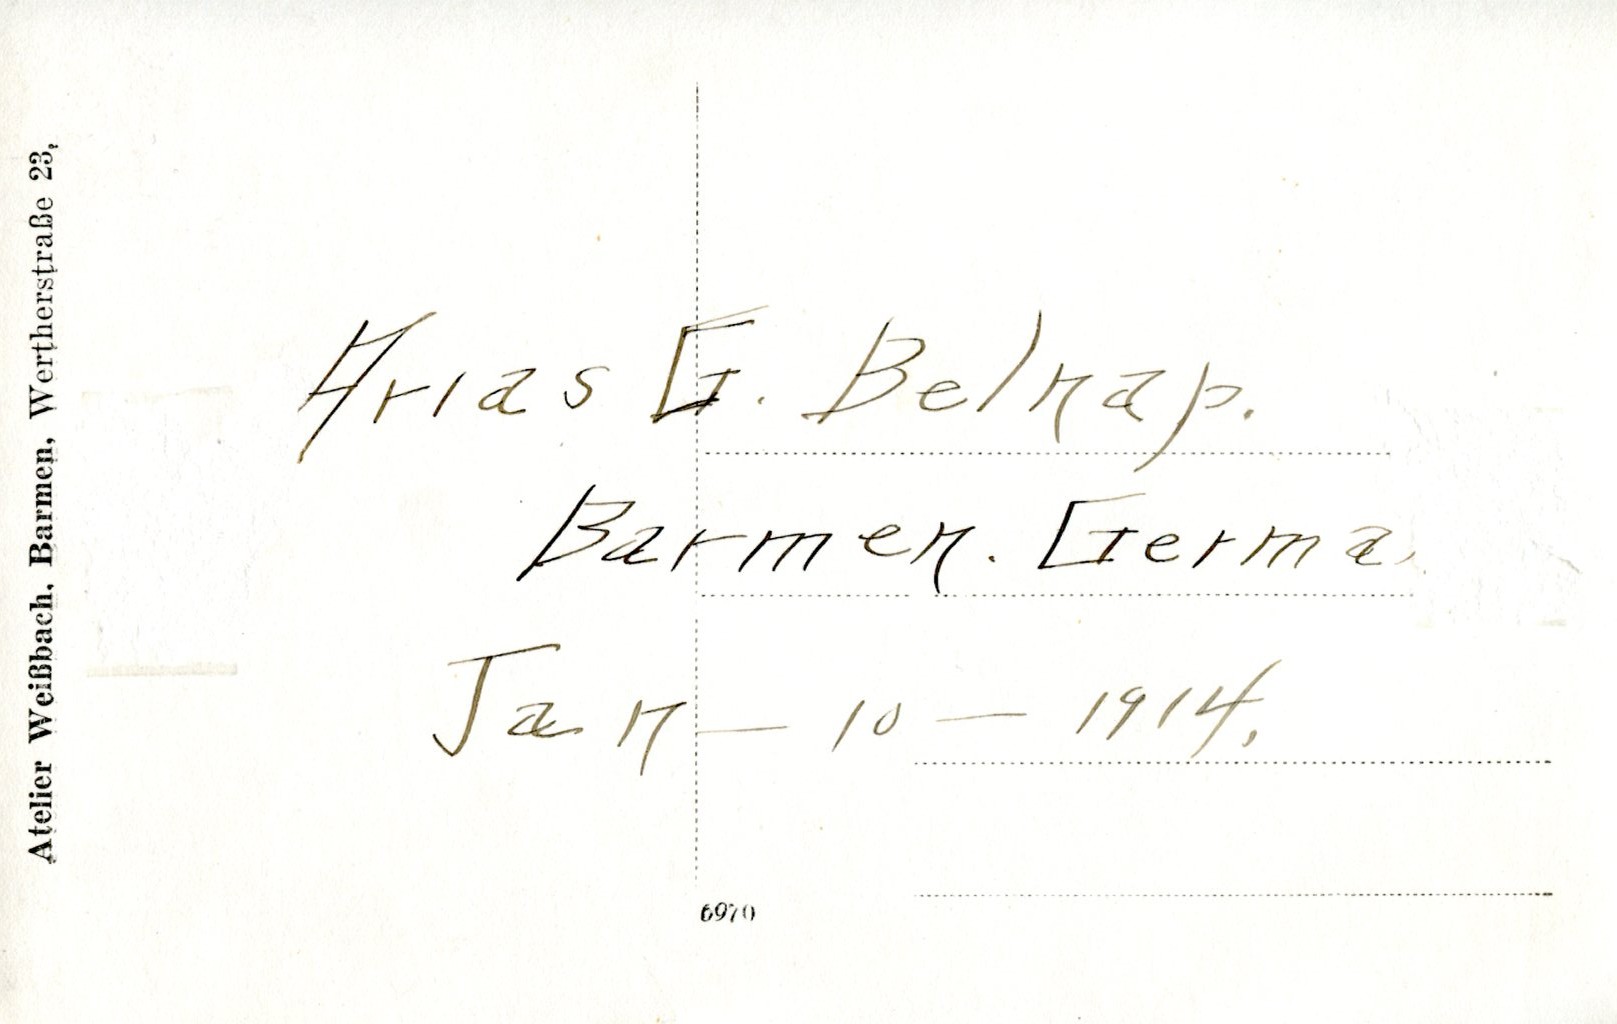 Atelier Weißbach, Barmen, Wertherstraße 23,
Arias G. Belnap.
Barmen. Germa
Jan – 10 – 1914.
6970